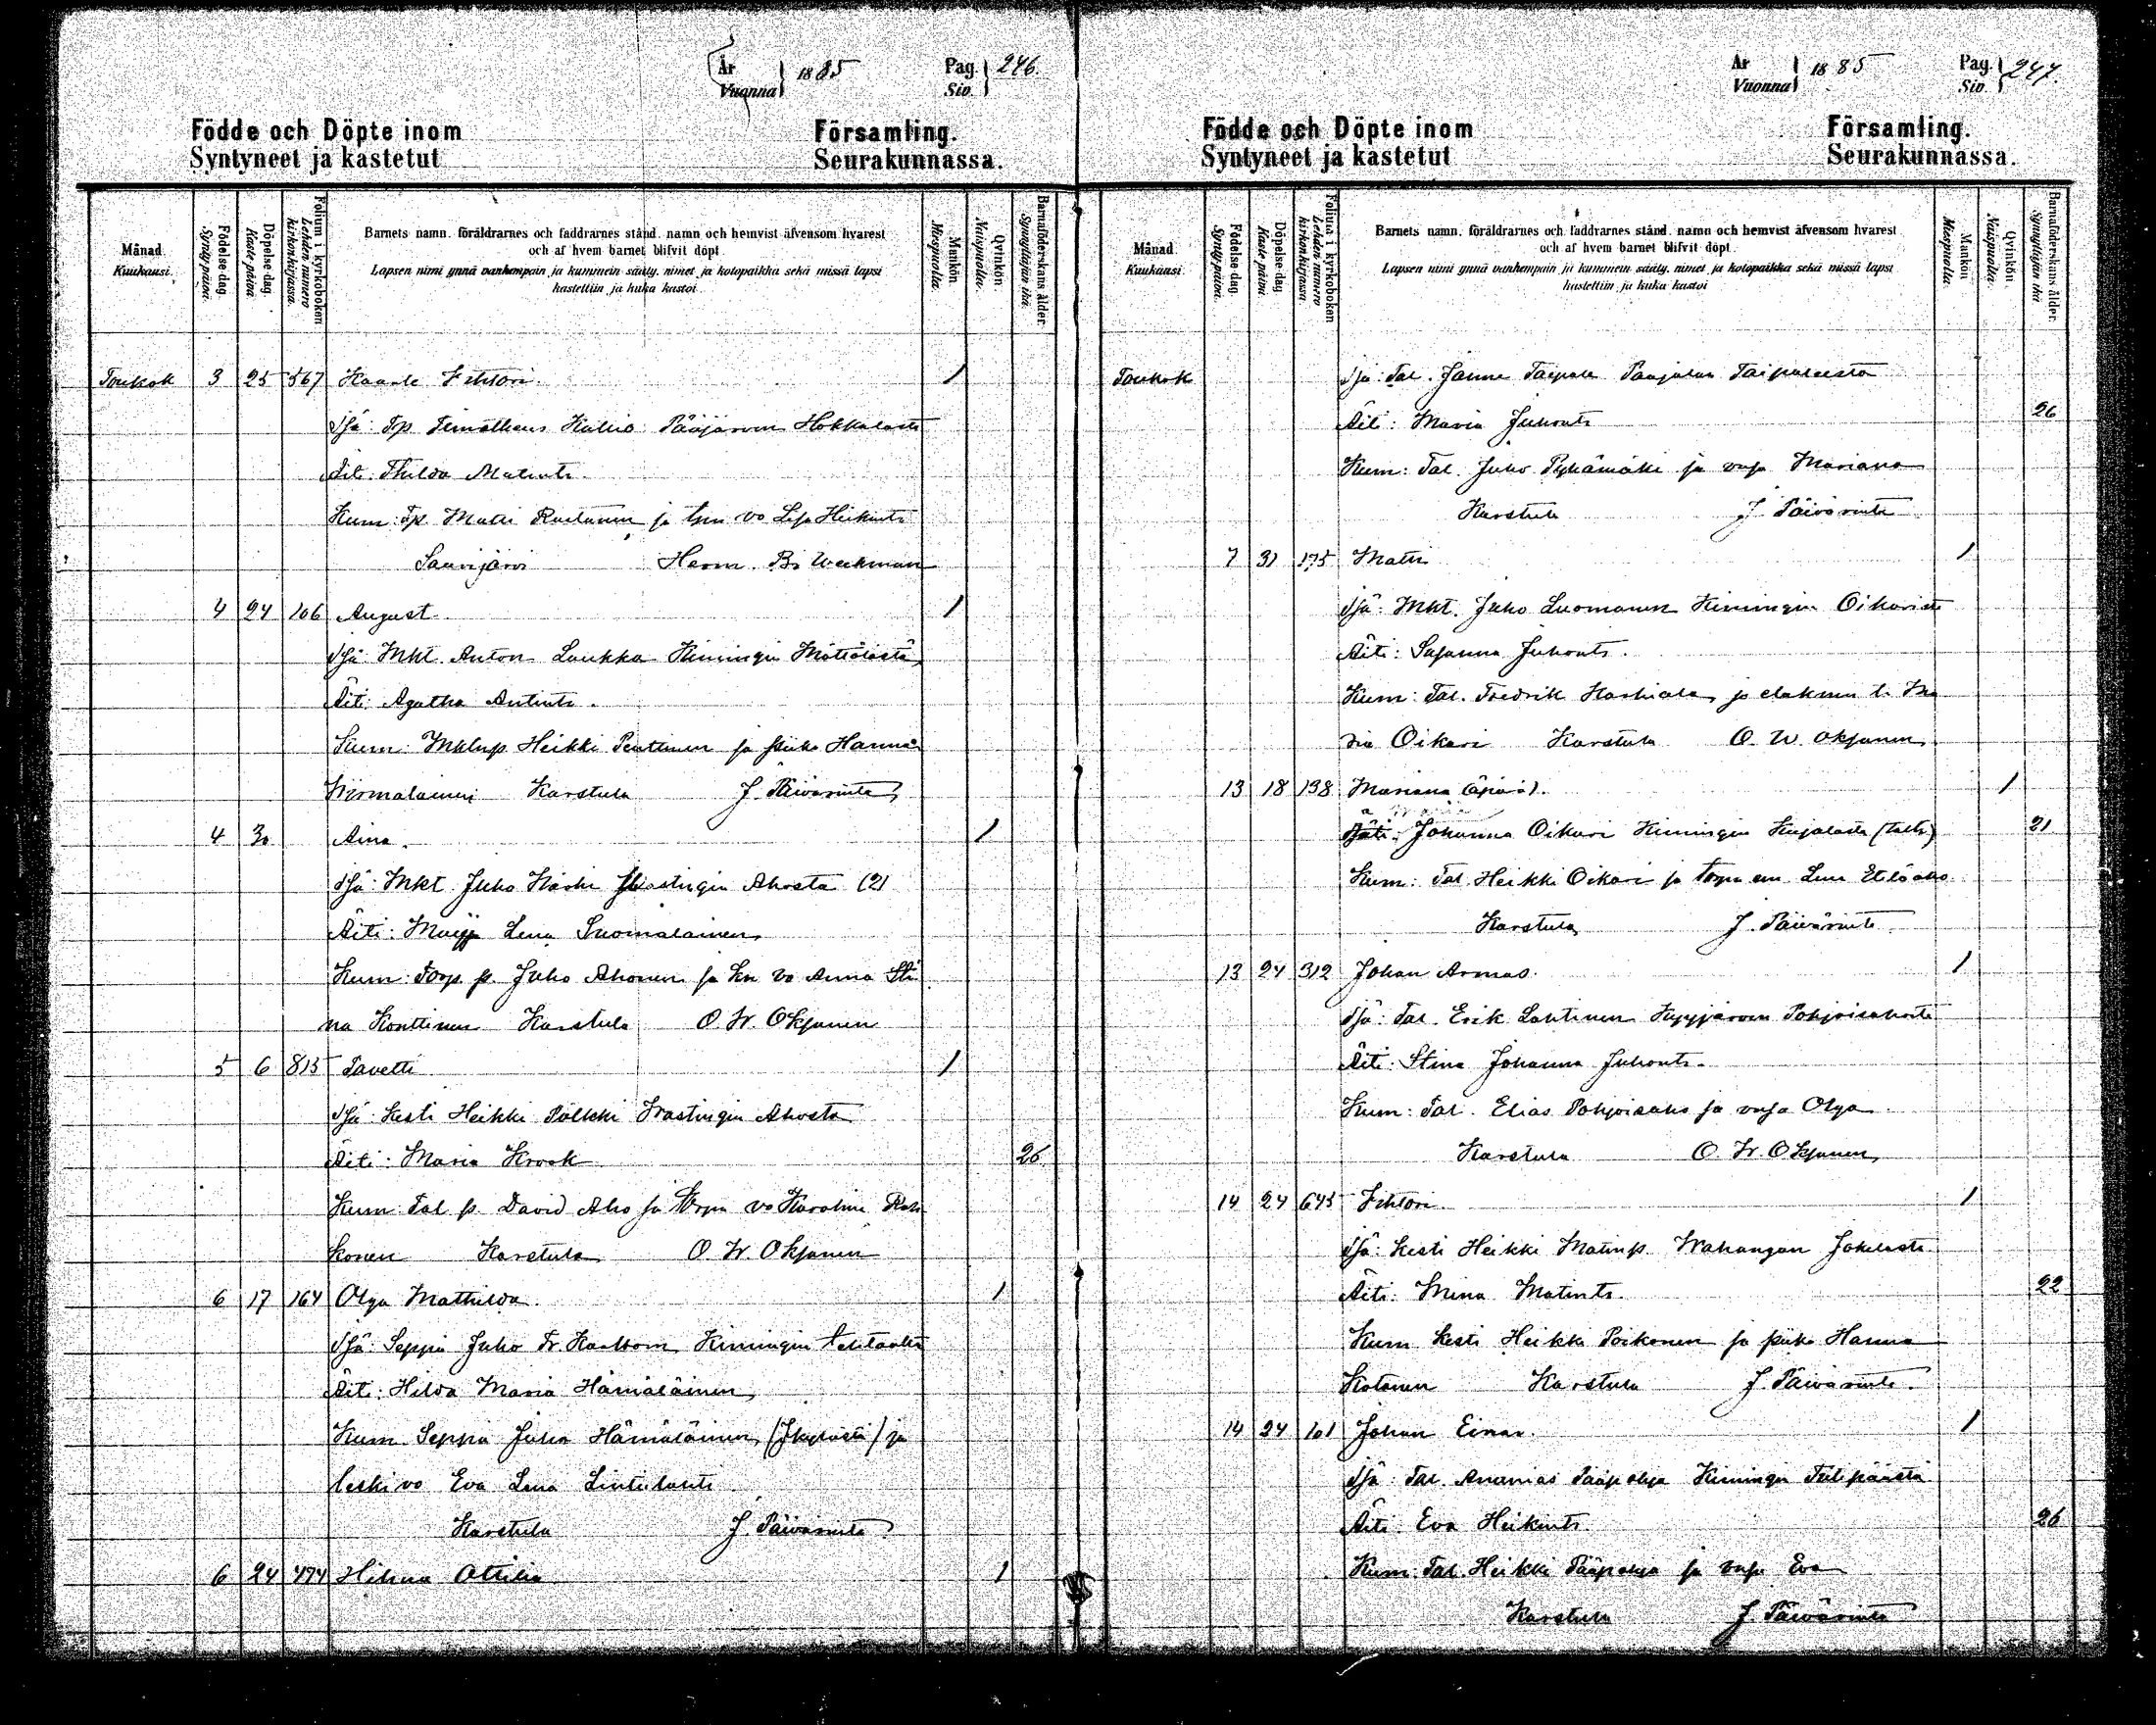 År
Vuonna 1885
Pag.
Siv. 246.
Födde och Döpte inom Församling.
Syntyneet ja kastetut Seurakunnassa.
Månad.
Kuukausi.
Födelse-dag.
Synty-päivä.
Döpelse-dag.
Kaste-päivä
Folium i kyrkoboken
Lehden numero kirkonkirjassa.
Barnets namn, föräldrarnes och faddrarnes stånd, namn och hemvist äfvensom hvarest
och af hvem barnet blifvit döpt.
Lapsen nimi ynnä vanhempain ja kummein sääty, nimet ja kotopaikka sekä missä lapsi
kastettiin ja kuka kastoi
Mankön.
Miespuolia.
Qvinkön
Naispuolia.
Barnaföderskans ålder.
Synnyttäjän ikä.
Toukok 3 25 567 Kaarle Fihtori. 1
Isä: Tp Timotheus Kallio Pääjärven Hokkalasta
Äiti: Thilda Matints
Kum: Tp Matti Rautanen ja vo Lisa Heikints
Saarijärvi Herm. Bj. Weckman
4 24 106 August. 1
Isä Mkt. Anton Laukka Kimingin Möttölästä
Äiti Agatha Antints.
Kum: Heikki Penttinen ja piika Hanna
Karstula J. Päivärinta
4 30 Aina. 1
Isä: Mkt. Juho Ahosta (2)
Äiti: Lena Suomalainen
Kum: Torp. p. Juho Ahonen ja vo Anna Sti
na Konttinen Karstula O. W. Oksanen
5 6 815 Tavetti 1
Isä: Kesti Heikki Pölkki Wastingin Ahosta
Äiti: Maria Krook 26
Kum: Tal. p. David Aho ja Torp. vo Karolina
konen Karstula O. W. Oksanen
6 17 164 Olga Mathilda. 1
Isä: Seppä Juho Fr. Kimingin
Äiti: Hilda Maria Hämäläinen
Kum. Seppä Juho Hämäläinen ja
leski vo Eva Lena
Karstula J. Päivärinta
6 24 474 Hilma Otilia 1
År
Vuonna 1885
Pag.
Siv. 247.
Födde och Döpte inom Församling.
Syntyneet ja kastetut Seurakunnassa.
Månad.
Kuukausi.
Födelse-dag.
Synty-päivä.
Döpelse-dag.
Kaste-päivä
Folium i kyrkoboken
Lehden numero kirkonkirjassa.
Barnets namn, föräldrarnes och faddrarnes stånd, namn och hemvist äfvensom hvarest
och af hvem barnet blifvit döpt.
Lapsen nimi ynnä vanhempain ja kummein sääty, nimet ja kotopaikka sekä missä lapsi
kastettiin ja kuka kastoi
Mankön
Miespuolia
Qvinkön
Naispuolia.
Barnaföderskans ålder.
Synnyttäjän ikä
Toukok Isä: Tal. Janne Taipale Paajalan Taipaleesta
Äiti: Maria Juhonts 26
Kum: Tal. Juho Pyhämäki ja vmsa Mariana
Karstula J. Päivärinta
7 31 175 Matti 1
Isä: Mkt. Juho Luomanen Kimingin Oikarista
Äiti: Susanna Juhonts.
Kum: Tal. Fredrik ja t. Ma
ria Oikari Karstula O. W. Oksanen
13 18 138 Mariana (äpärä). 1
Äiti: Johanna Oikari Kimingin 21
Kum: Tal. Heikki Oikari ja Lena
Karstula J. Päivärinta
13 24 312 Johan Armas 1
Isä: Tal. Erik Lahtinen Kyyjärven Pohjoisaholta
Äiti: Stina Johanna Juhonts.
Kum: Tal. Elias Pohjoisaho ja vmsa Olga
Karstula O. W. Oksanen
14 24 645 Fihtori. 1
Isä: Kesti Heikki Matinp. Wahangan Jokelasta
Äiti: Mina Matints. 22
Kum Kesti Heikki Poikonen ja piika Hanna
Kotanen Karstula J. Päivärinta.
14 24 101 Johan Einar. 1
Isä: Tal. Ananias Pääpohja Kimingin
Äiti: Eva Heikints. 26
Kum: Tal. Heikki Pääpohja ja vmsa Eva
Karstula J. Päivärinta